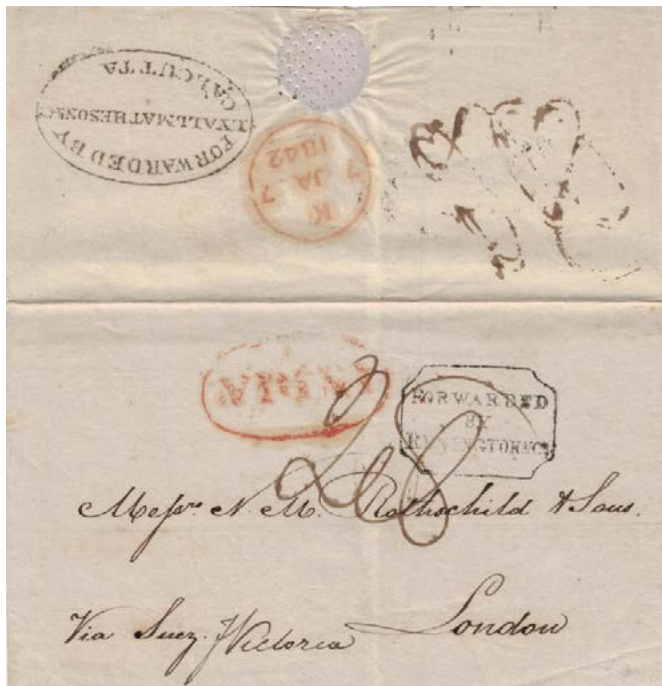 FORWARDED BY
LYALL MATHESON & Co
CALCUTTA
K
7 JA 7
1842
INDIA
FORWARDED
BY
REMINGTON & Co
2/8
Messrs N. M. Rothschild & Sons.
London
Via Suez p Victoria